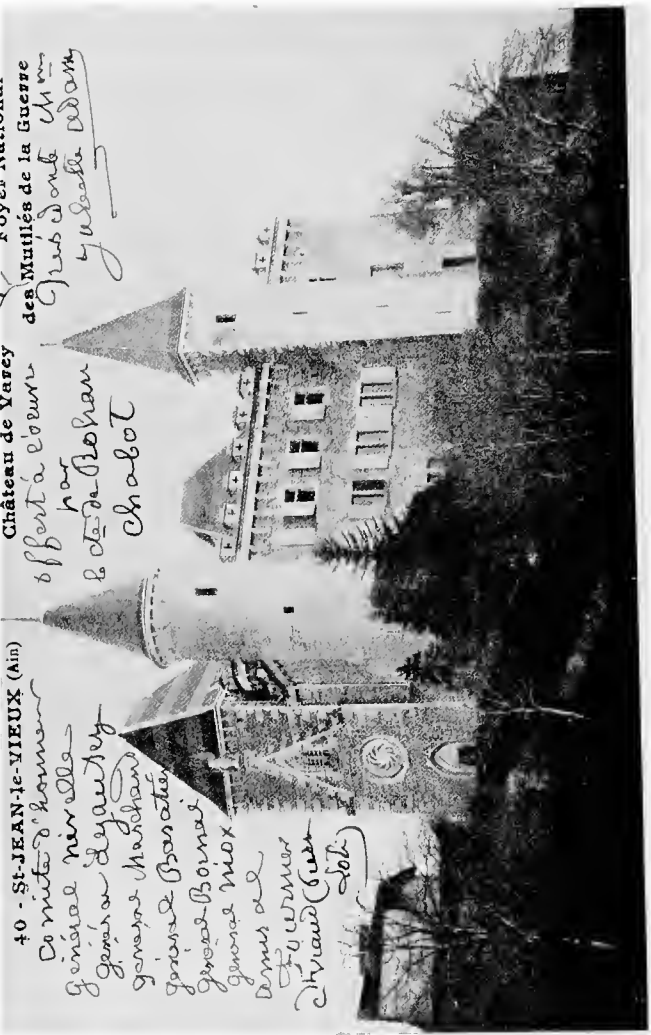 40 - St-JEAN-le-VIEUX (Ain)
Comité d'honneur
général nivelle
général Lyautey
général Marchand
général Baratier
général Boinai
général niox
amiral
Fournier
Viaud (Pierre
Loti)
Château de Varey
offert à l'œuvre
par
le cte de Rohan
Chabot
Foyer National
des Mutilés de la Guerre
Présidente
Juliette Adam